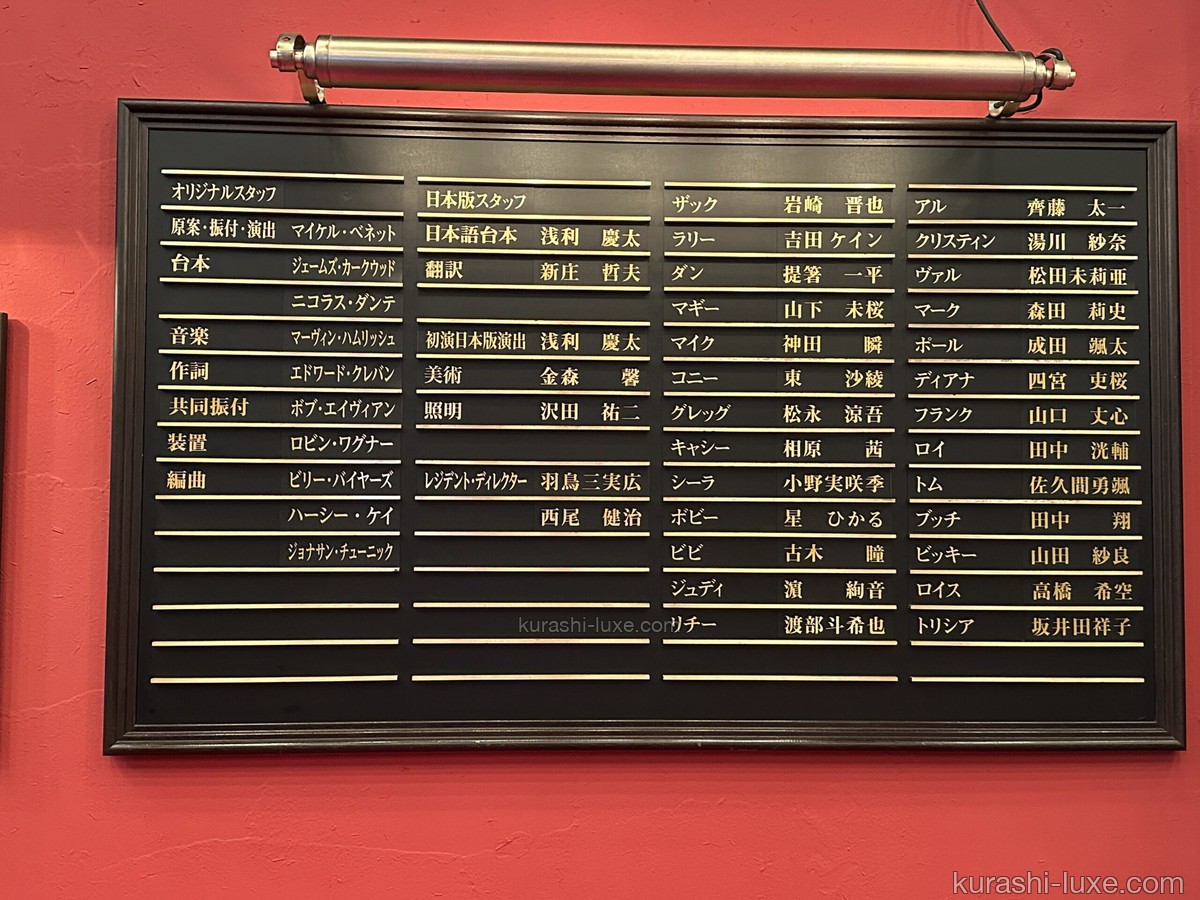 オリジナルスタッフ
原案・振付・演出 マイケル・ベネット
台本 ジェームズ・カークウッド
ニコラス・ダンテ
音楽 マーヴィン・ハムリッシュ
作詞 エドワード・クレバン
共同振付 ボブ・エイヴィアン
装置 ロビン・ワグナー
編曲 ビリー・バイヤーズ
ハーシー・ケイ
ジョナサン・チューニック
日本版スタッフ
日本語台本 浅利 慶太
翻訳 新庄 哲夫
初演日本版演出 浅利 慶太
美術 金森 馨
照明 沢田 祐二
レジデント・ディレクター 羽鳥三実広
西尾 健治
ザック 岩崎 晋也
ラリー 吉田 ケイン
ダン 提箸 一平
マギー 山下 未桜
マイク 神田 瞬
コニー 東 沙綾
グレッグ 松永 涼吾
キャシー 相原 茜
シーラ 小野実咲季
ボビー 星 ひかる
ビビ 古木 瞳
ジュディ 濵 絢音
リチー 渡部斗希也
アル 齊藤 太一
クリスティン 湯川 紗奈
ヴァル 松田未莉亜
マーク 森田 莉史
ポール 成田 颯太
ディアナ 四宮 吏桜
フランク 山口 丈心
ロイ 田中 洸輔
トム 佐久間勇颯
ブッチ 田中 翔
ビッキー 山田 紗良
ロイス 高橋 希空
トリシア 坂井田祥子
kurashi-luxe.com
kurashi-luxe.com